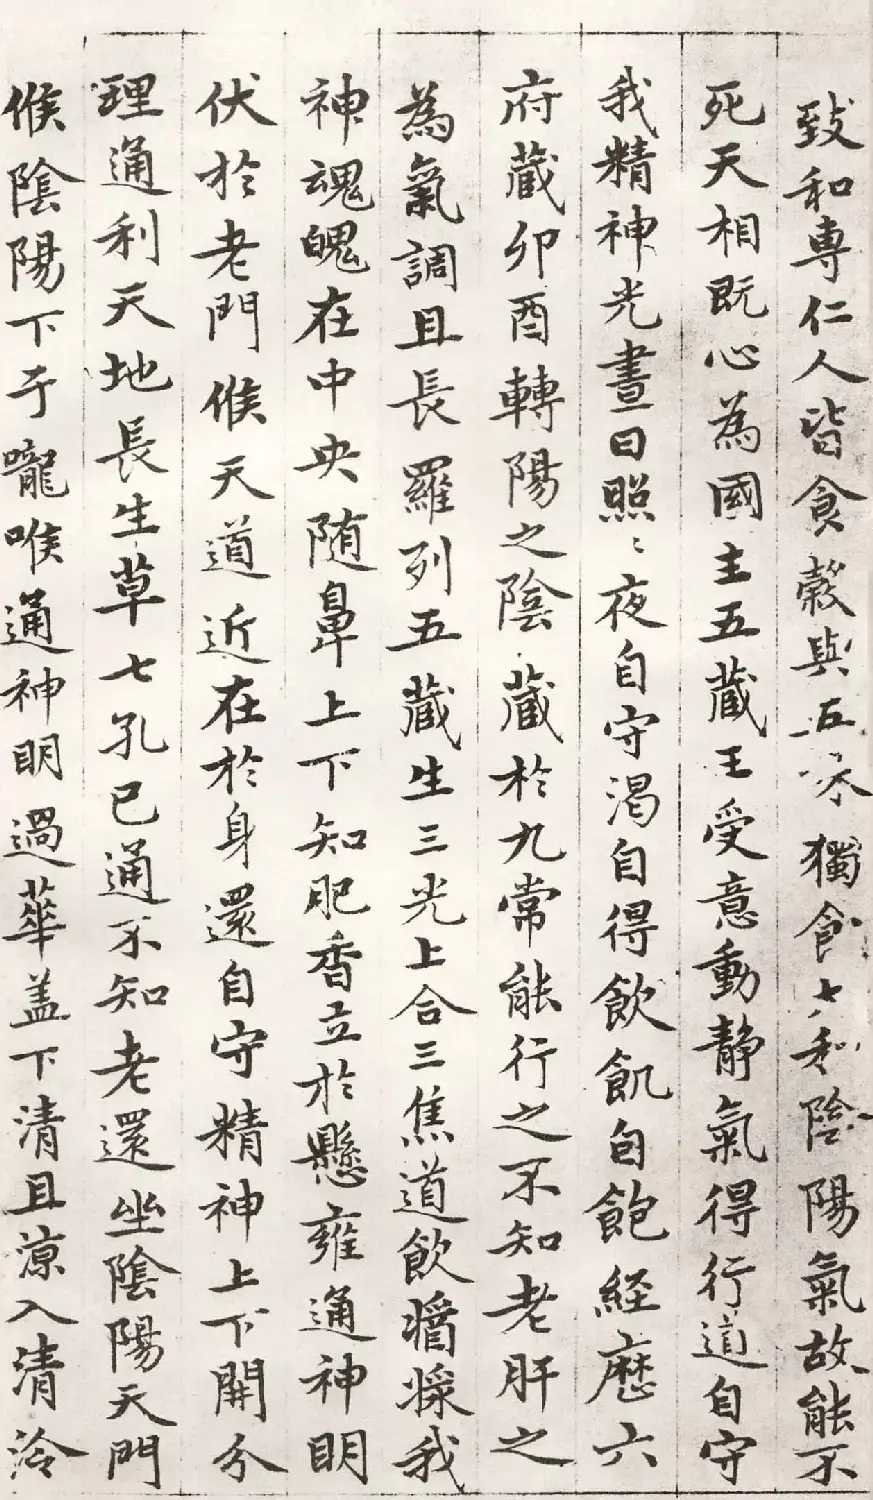 致和專仁人皆食穀與五味獨食大和陰陽氣故能不
死天相既心為國主五藏王受意動静氣得行道自守
我精神光晝日照〻夜自守渴自得飲飢自飽経歷六
府藏卯酉轉陽之陰藏於九常能行之不知老肝之
為氣調且長羅列五藏生三光上合三焦道飲漿我
神魂魄在中央随鼻上下知肥香立於懸雍通神明
伏於老門候天道近在於身還自守精神上下開分
理通利天地長生草七孔已通不知老還坐陰陽天門
候陰陽下于嚨喉通神明過華盖下清且涼入清泠